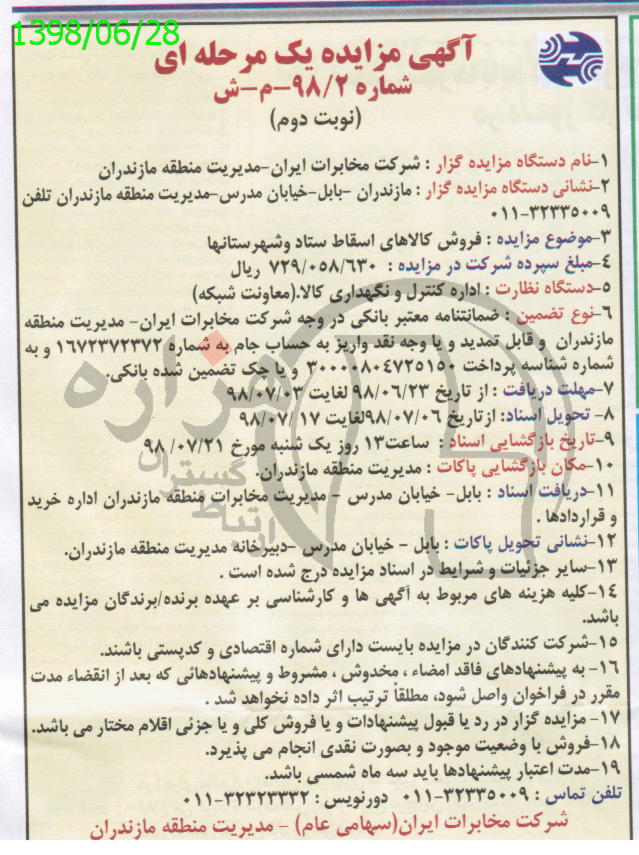 1398/06/28
آگهی مزایده یک مرحله ای
شماره ۹۸/۲-م-ش
(نوبت دوم)
۱-نام دستگاه مزایده گزار : شرکت مخابرات ایران-مدیریت منطقه مازندران
۲-نشانی دستگاه مزایده گزار : مازندران -بابل-خیابان مدرس-مدیریت منطقه مازندران تلفن
۰۱۱-۳۲۳۳۵۰۰۹
۳-موضوع مزایده : فروش کالاهای اسقاط ستاد وشهرستانها
۴-مبلغ سپرده شرکت در مزایده : ۷۲۹/۰۵۸/۶۳۰ ریال
۵-دستگاه نظارت : اداره کنترل و نگهداری کالا.(معاونت شبکه)
۶-نوع تضمین : ضمانتنامه معتبر بانکی در وجه شرکت مخابرات ایران- مدیریت منطقه
مازندران و قابل تمدید و یا وجه نقد واریز به حساب جام به شماره ۱۶۷۲۳۷۲۳۷۲ و به
شماره شناسه پرداخت ۳۰۰۰۰۸۰۴۷۲۵۱۵۰ و یا چک تضمین شده بانکی.
۷-مهلت دریافت : از تاریخ ۹۸/۰۶/۲۳ لغایت ۹۸/۰۷/۰۳
۸- تحویل اسناد: ازتاریخ ۹۸/۰۷/۰۶لغایت ۹۸/۰۷/۱۷
۹-تاریخ بازگشایی اسناد : ساعت۱۳ روز یک شنبه مورخ ۹۸ /۰۷/۲۱
۱۰-مکان بازگشایی پاکات : مدیریت منطقه مازندران.
۱۱-دریافت اسناد : بابل- خیابان مدرس - مدیریت مخابرات منطقه مازندران اداره خرید
و قراردادها .
۱۲-نشانی تحویل پاکات : بابل - خیابان مدرس -دبیرخانه مدیریت منطقه مازندران.
۱۳-سایر جزئیات و شرایط در اسناد مزایده درج شده است .
۱۴-کلیه هزینه های مربوط به آگهی ها و کارشناسی بر عهده برنده/برندگان مزایده می
باشد.
۱۵-شرکت کنندگان در مزایده بایست دارای شماره اقتصادی و کدپستی باشند.
۱۶- به پیشنهادهای فاقد امضاء ، مخدوش ، مشروط و پیشنهادهائی که بعد از انقضاء مدت
مقرر در فراخوان واصل شود، مطلقاً ترتیب اثر داده نخواهد شد .
۱۷- مزایده گزار در رد یا قبول پیشنهادات و یا فروش کلی و یا جزئی اقلام مختار می باشد.
۱۸-فروش با وضعیت موجود و بصورت نقدی انجام می پذیرد.
۱۹-مدت اعتبار پیشنهادها باید سه ماه شمسی باشد.
تلفن تماس : ۰۱۱-۳۲۳۳۵۰۰۹ دورنویس : ۰۱۱-۳۲۳۲۳۳۳۲
شرکت مخابرات ایران(سهامی عام) - مدیریت منطقه مازندران
هزاره
گستران
ارتباط